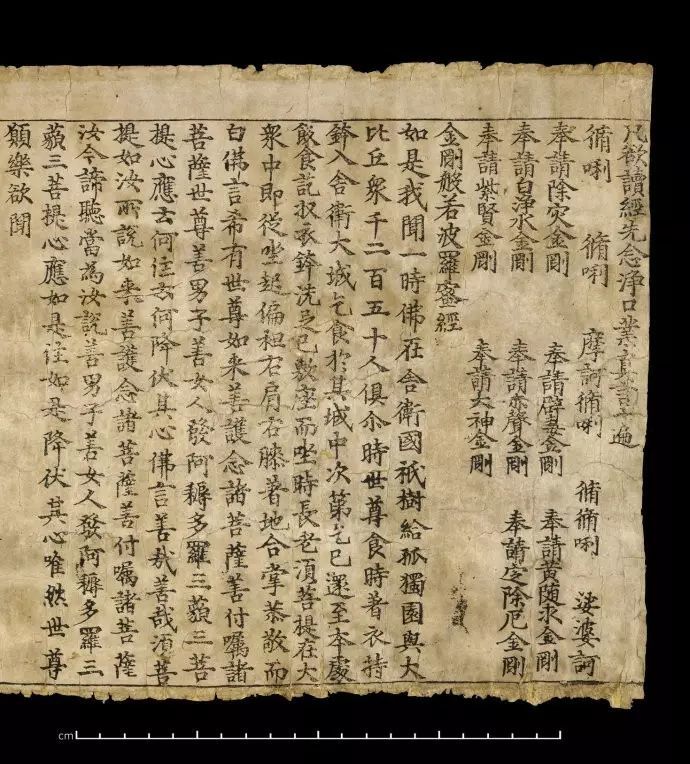 凡欲讀經先念淨口業真言一遍
脩唎 脩唎 摩訶脩唎 脩脩唎 娑婆訶
奉請除灾金剛 奉請辟毒金剛 奉請黃随求金剛
奉請白淨水金剛 奉請赤聲金剛 奉請定除厄金剛
奉請紫賢金剛 奉請大神金剛
金剛般若波羅蜜經
如是我聞一時佛在舍衛國祇樹給孤獨園與大
比丘衆千二百五十人俱尒時世尊食時著衣持
鉢入舍衛大城乞食於其城中次第乞已還至本處
飯食訖収衣鉢洗足已敷座而坐時長老湏菩提在大
衆中即從坐起偏袒右肩右膝著地合掌恭敬而
白佛言希有世尊如来善護念諸菩薩善付囑諸
菩薩世尊善男子善女人發阿耨多羅三藐三菩
提心應云何住云何降伏其心佛言善哉善哉湏菩
提如汝所說如来善護念諸菩薩善付囑諸菩薩
汝今諦聽當為汝說善男子善女人發阿耨多羅三
藐三菩提心應如是住如是降伏其心唯然世尊
願樂欲聞
cm